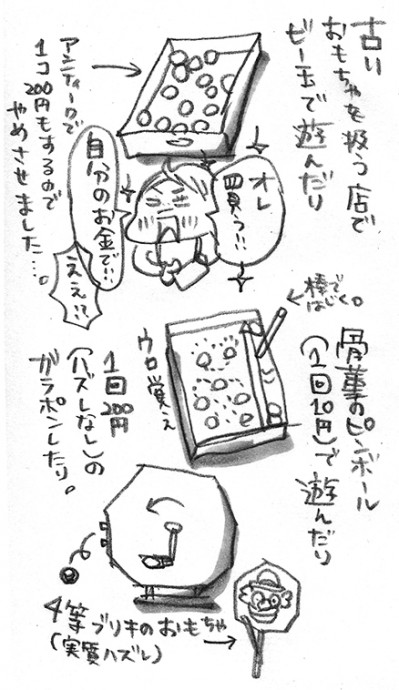 古い
おもちゃを扱う店で
ビー玉で遊んだり
アンティークで
1コ200円もするので
やめさせました…。
オレ
買う!!
自分のお金で!!
ええ!?
棒で
はじく。
骨董のピンボール
(1回10円)で遊んだり
ウロ覚え
1回200円
(ハズレなし)の
ガラポンしたり。
4等ブリキのおもちゃ
(実質ハズレ)